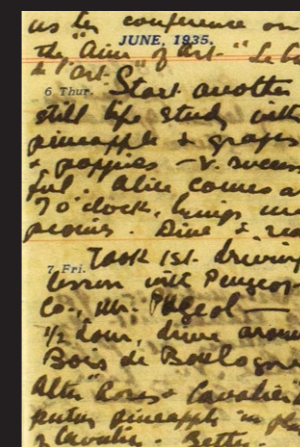 as her conference on
JUNE, 1935.
the "Aim" of Art." Le
in "art.
6 Thur. Start another
still life study with
pineapple & grapes
& poppies - v. success
ful. Alice comes a
7 o'clock, brings me
peonies. Dine &
7 Fri. Took 1st. driving
lesson with Peugeot
Co., Mr. Pageol —
1/2 hour, drive aroun
Bois de Boulogne
After "Roses & Cavalier"
pineapple in pla
Cavalier. Better